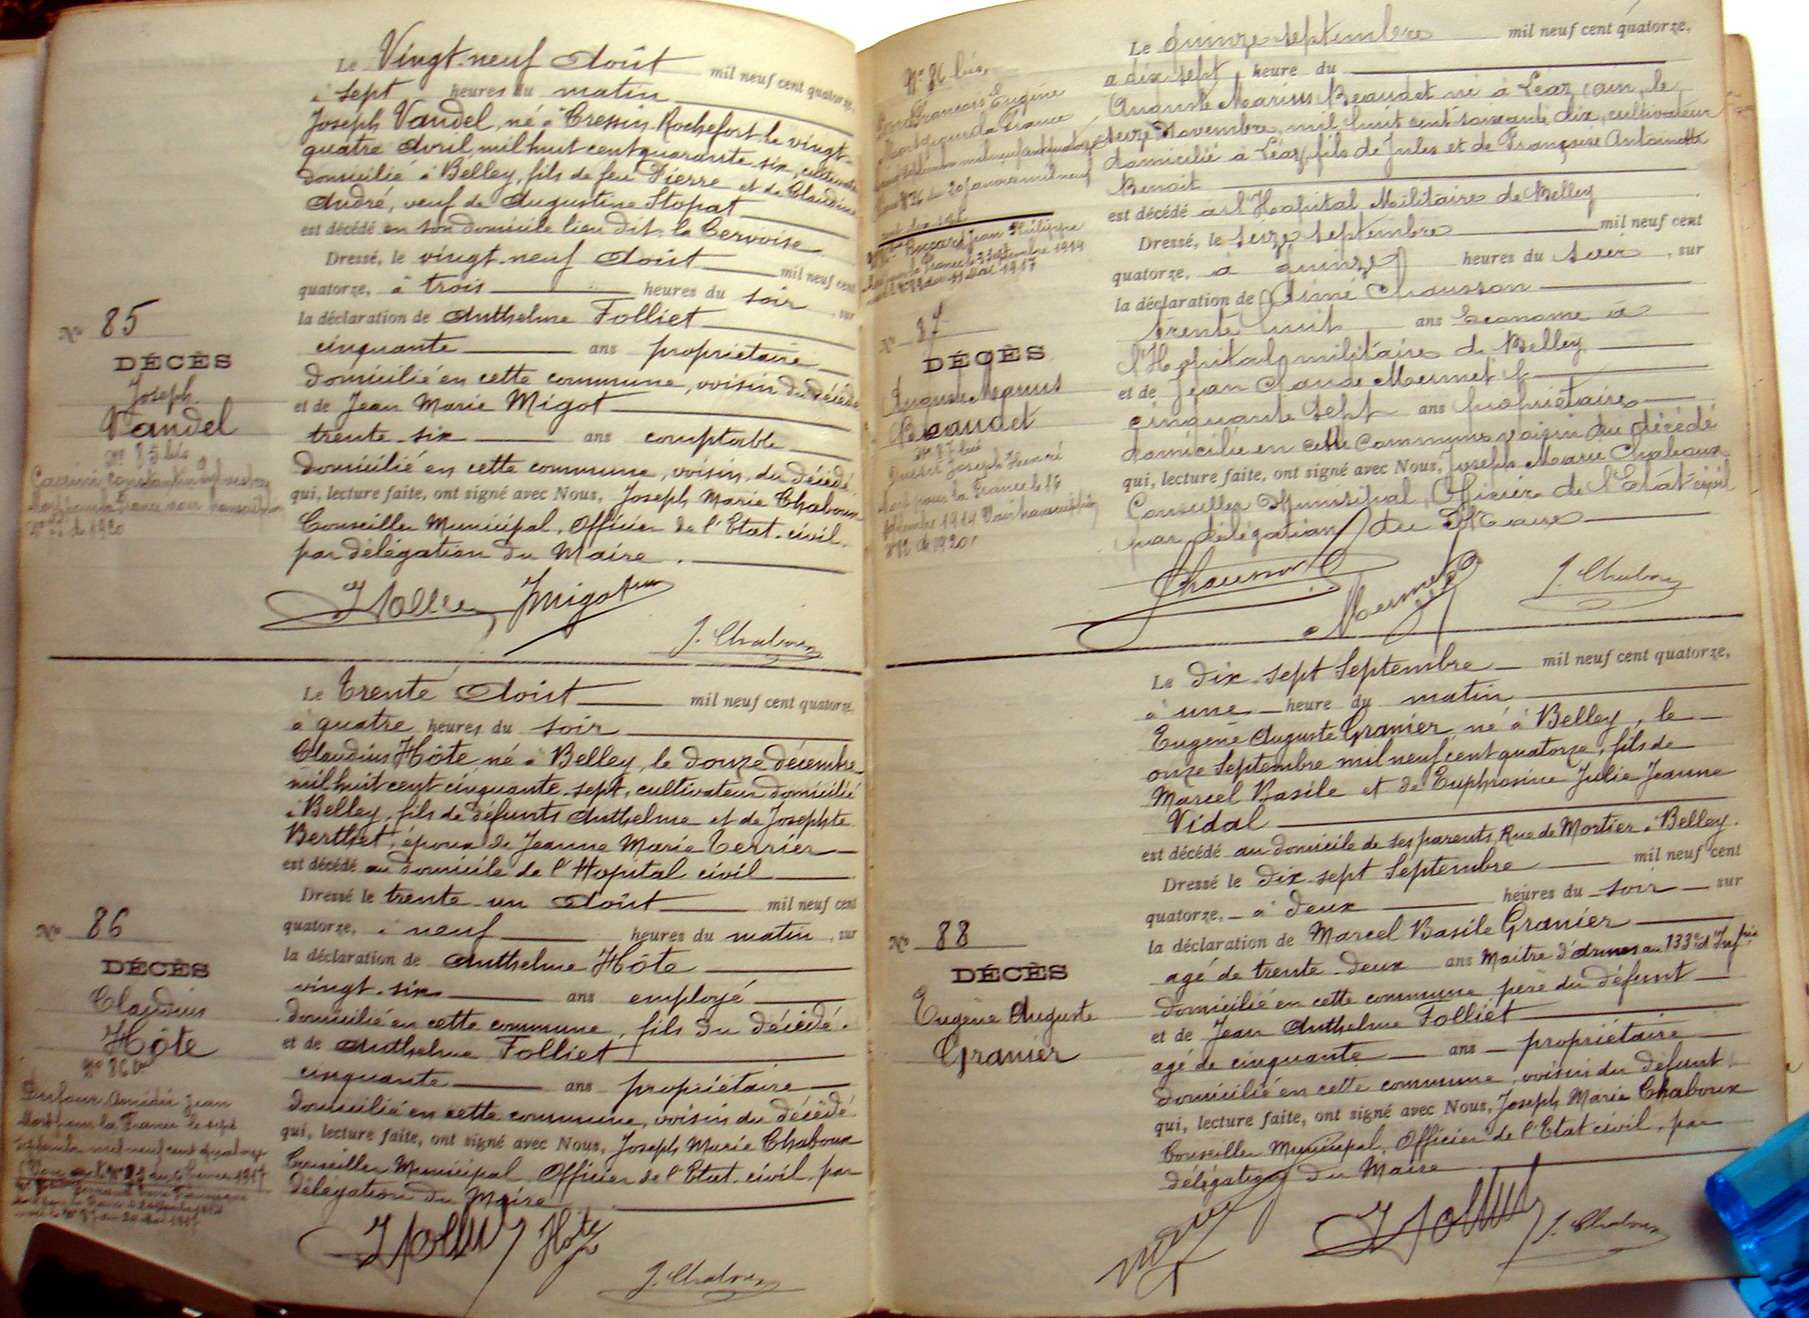 Le Vingt-neuf Août mil neuf cent quatorze,
à sept heures du matin
Joseph Vandel, né à Cressin-Rochefort le vingt-
quatre Avril, mil huit cent quarante six, cultivateur
domicilié à Belley, fils de feu Pierre et de Claudine
André, veuf de Augustine Stopat
est décédé en son domicile lieu dit la Cervoise
Dressé, le vingt-neuf Août mil neuf cent
quatorze, à trois heures du soir, sur
la déclaration de Anthelme Folliet
cinquante ans propriétaire
domicilié en cette commune, voisin du décédé
et de Jean Marie Migot
trente-six ans comptable
domicilié en cette commune, voisin du décédé
qui, lecture faite, ont signé avec Nous, Joseph Marie Chaboux
Conseiller Municipal, Officier de l'Etat-civil,
par délégation du Maire.
J. Chaboux
No 85
DÉCÈS
Joseph
Vandel
No 85 bis
Mort pour la France voir transcription
de 1920
Le Trente Août mil neuf cent quatorze,
à quatre heures du soir
Claudius Hôte né à Belley, le douze décembre
mil huit cent cinquante-sept, cultivateur domicilié
à Belley, fils de défunts Anthelme et de Josephte
Berthet, époux de Jeanne Marie Terrier
est décédé au domicile de l'Hopital civil
Dressé le trente-un Août mil neuf cent
quatorze, à neuf heures du matin, sur
la déclaration de Anthelme Hôte
vingt-six ans employé
domicilié en cette commune, fils du décédé.
et de Anthelme Folliet
cinquante ans propriétaire
domicilié en cette commune, voisin du décédé
qui, lecture faite, ont signé avec Nous, Joseph Marie Chaboux
Conseiller Municipal, Officier de l'Etat-civil, par
délégation du Maire
Hôte
J. Chaboux
No 86
DÉCÈS
Claudius
Hôte
Dufour Amédée Jean
Mort pour la France le sept
septembre mil neuf cent quatorze
Le quinze septembre mil neuf cent quatorze,
à dix sept heure du
Auguste Marius Beaudet né à Léaz, ain, le
seize Novembre, mil huit cent soixante dix, cultivateur
domicilié à Léaz, fils de Jules et de Françoise Antoinette
Benoit
est décédé à l'Hopital Militaire de Belley
Dressé, le seize septembre mil neuf cent
quatorze, à quinze heures du soir, sur
la déclaration de Aimé Chausson
trente huit ans Econome à
l'Hopital militaire de Belley
et de Jean Claude Mermet
cinquante sept ans propriétaire
domicilié en cette commune voisin du décédé
qui, lecture faite, ont signé avec Nous, Joseph Marie Chaboux
Conseiller Municipal, Officier de l'Etat-civil
par délégation du Maire
Chausson
Mermet
J. Chaboux
No 86 bis
François Eugène
Mort pour la France
Jean Philippe
septembre 1914
Mai 1917
No 87
DÉCÈS
Auguste Marius
Beaudet
Joseph
Mort pour la France le 16
septembre 1914 Voir transcription
de 1920
Le Dix-sept Septembre mil neuf cent quatorze,
à une heure du matin
Eugène Auguste Granier, né à Belley, le
onze Septembre mil neuf cent quatorze, fils de
Marcel Basile et de Euphrosine Julie Jeanne
Vidal
est décédé au domicile de ses parents, Rue de Mortier à Belley.
Dressé le dix-sept Septembre mil neuf cent
quatorze, à deux heures du soir sur
la déclaration de Marcel Basile Granier
agé de trente-deux ans Maitre d'armes au 133e d'Infrie
domicilié en cette commune, père du défunt
et de Jean Anthelme Folliet
agé de cinquante ans propriétaire
domicilié en cette commune, voisin du défunt.
qui, lecture faite, ont signé avec Nous, Joseph Marie Chaboux
Conseiller Municipal, Officier de l'Etat civil, par
délégation du Maire
J. Chaboux
No 88
DÉCÈS
Eugène Auguste
Granier